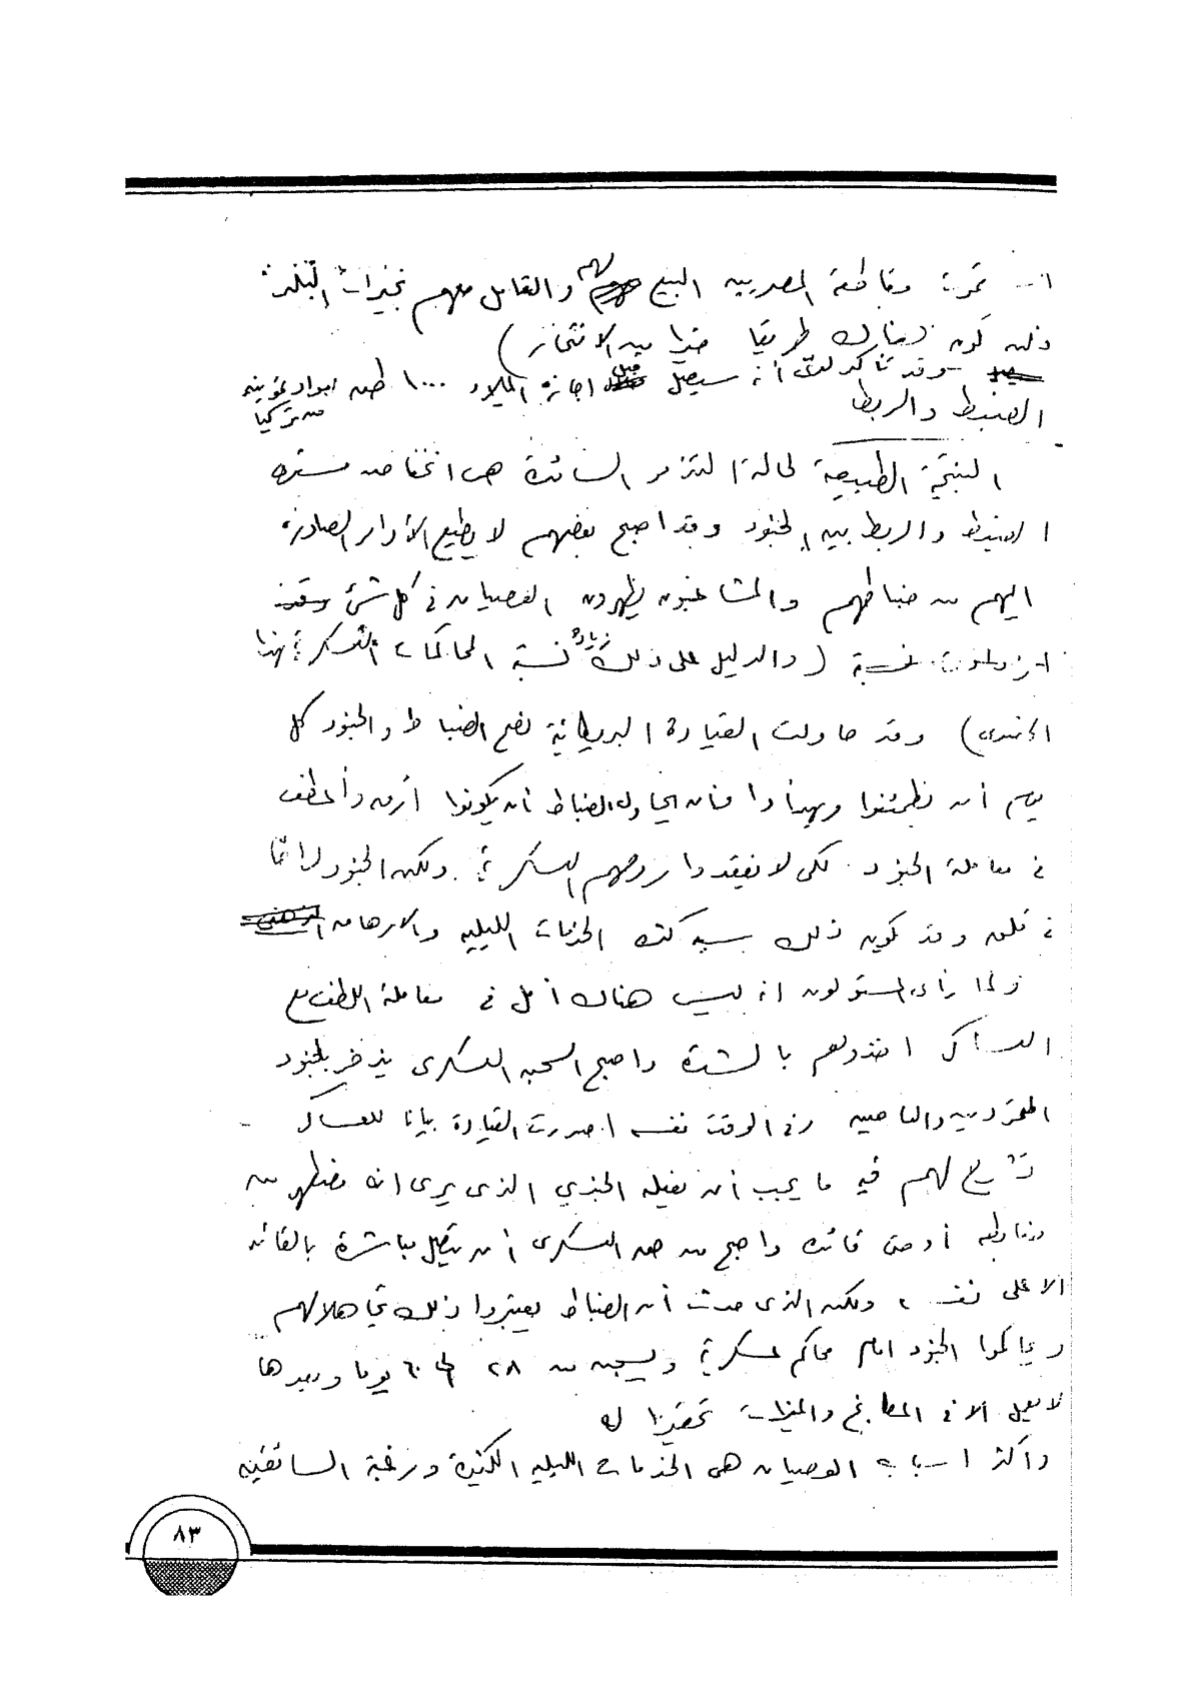 ان تموت مقاطعة المصريين البيع لهم والتعامل معهم بخيرات البلد
ذلك كون هناك طريقا خيرا من الانتحار)
وقد تأكد لدى أنه سيصل قبل اجازة الميلاد ١٠٠٠ طن مواد تموينيه
من تركيا
الضبط والربط
النتيجة الطبيعية لحالة التذمر السائدة هى انخفاض مستوى
الضبط والربط بين الجنود وقد اصبح بعضهم لا يطيع الأوامر الصادرة
اليهم من ضباطهم والمشاغبون يظهرون العصيان فى كل شئ
نسبة (والدليل على ذلك زيادة نسبة المحاكمات العسكرية لهذا
الجندى) وقد حاولت القيادة البريطانية نصح الضباط والجنود كل
يوم أن يطمئنوا ويهدأوا وكان يحاول الضباط أن يكونوا أرق وأعطف
فى معاملة الجنود لكى لا يفقدوا روحهم العسكرية. ولكن الجنود دائما
فى قلق وقد يكون ذلك بسبب كثرة الخدمات الليليه والارهاق
ولما رأى المسئولون انه ليس هناك أمل فى معاملة اللطف مع
العساكر اخذوهم بالشدة واصبح السجن العسكرى يذخر بالجنود
المتمردين والعاصين وفى الوقت نفسه اصدرت القيادة بيانا للعساكر
تشرح لهم فيه ما يجب أن يفعله الجندي الذى يرى انه مضطهد من
ضابطه أو حتى قائده واصبح من حق العسكرى أن يتصل مباشرة بالقائد
الاعلى نفسه، ولكن الذى حدث أن الضباط يعتبروا ذلك تجاهلا لهم
وحاكموا الجنود امام محاكم عسكرية ويسجن من ٢٨ الى ٦٠ يوما وبعدها
لا يعمل الا فى المطابخ والميزات تحقيرا له
وأكثر اسباب العصيان هى الخدمات الليليه الكثيرة ورغبة السائقين
٨٣